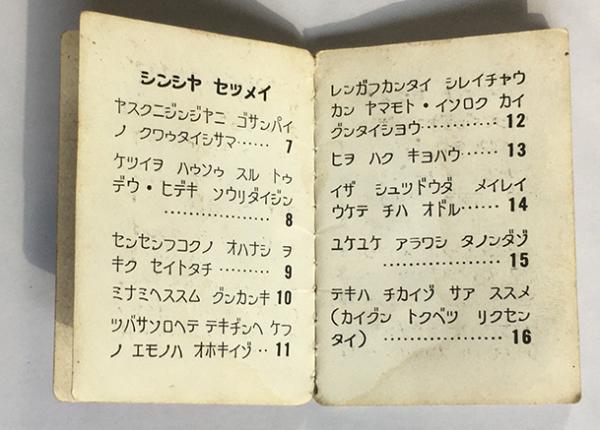 シンシヤ セツメイ
ヤスクニジンジヤニ ゴサンパイ
ノ クワゥタイシサマ…… 7
ケツイヲ ハウソゥ スル トゥ
デウ・ヒデキ ソウリダイジン
……………… 8
センセンフコクノ オハナシ ヲ
キク セイトタチ……… 9
ミナミヘススム グンカンキ 10
ツバサソロヘテ テキヂンヘ ケフ
ノ エモノハ オホキイゾ‥ 11
レンガフカンタイ シレイチャウ
カン ヤマモト・イソロク カイ
グンタイショウ………… 12
ヒヲ ハク キヨハウ…… 13
イザ シュツドウダ メイレイ
ウケテ チハ オドル…… 14
ユケユケ アラワシ タノンダゾ
……………… 15
テキハ チカイゾ サア ススメ
(カイグン トクベツ リクセン
タイ) ……………… 16